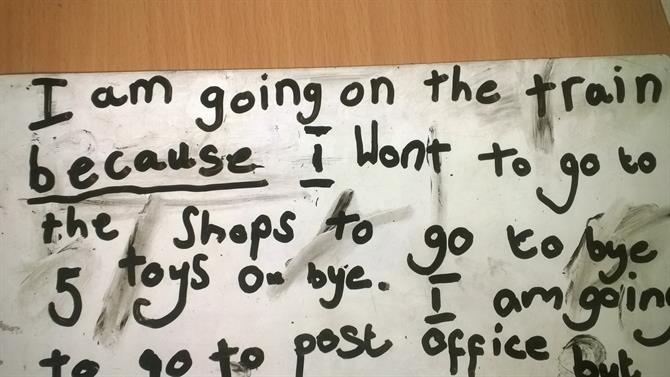 I am going on the train
because I wont to go to
the shops to go to bye
5 toys o bye. I am going
to go to post office but